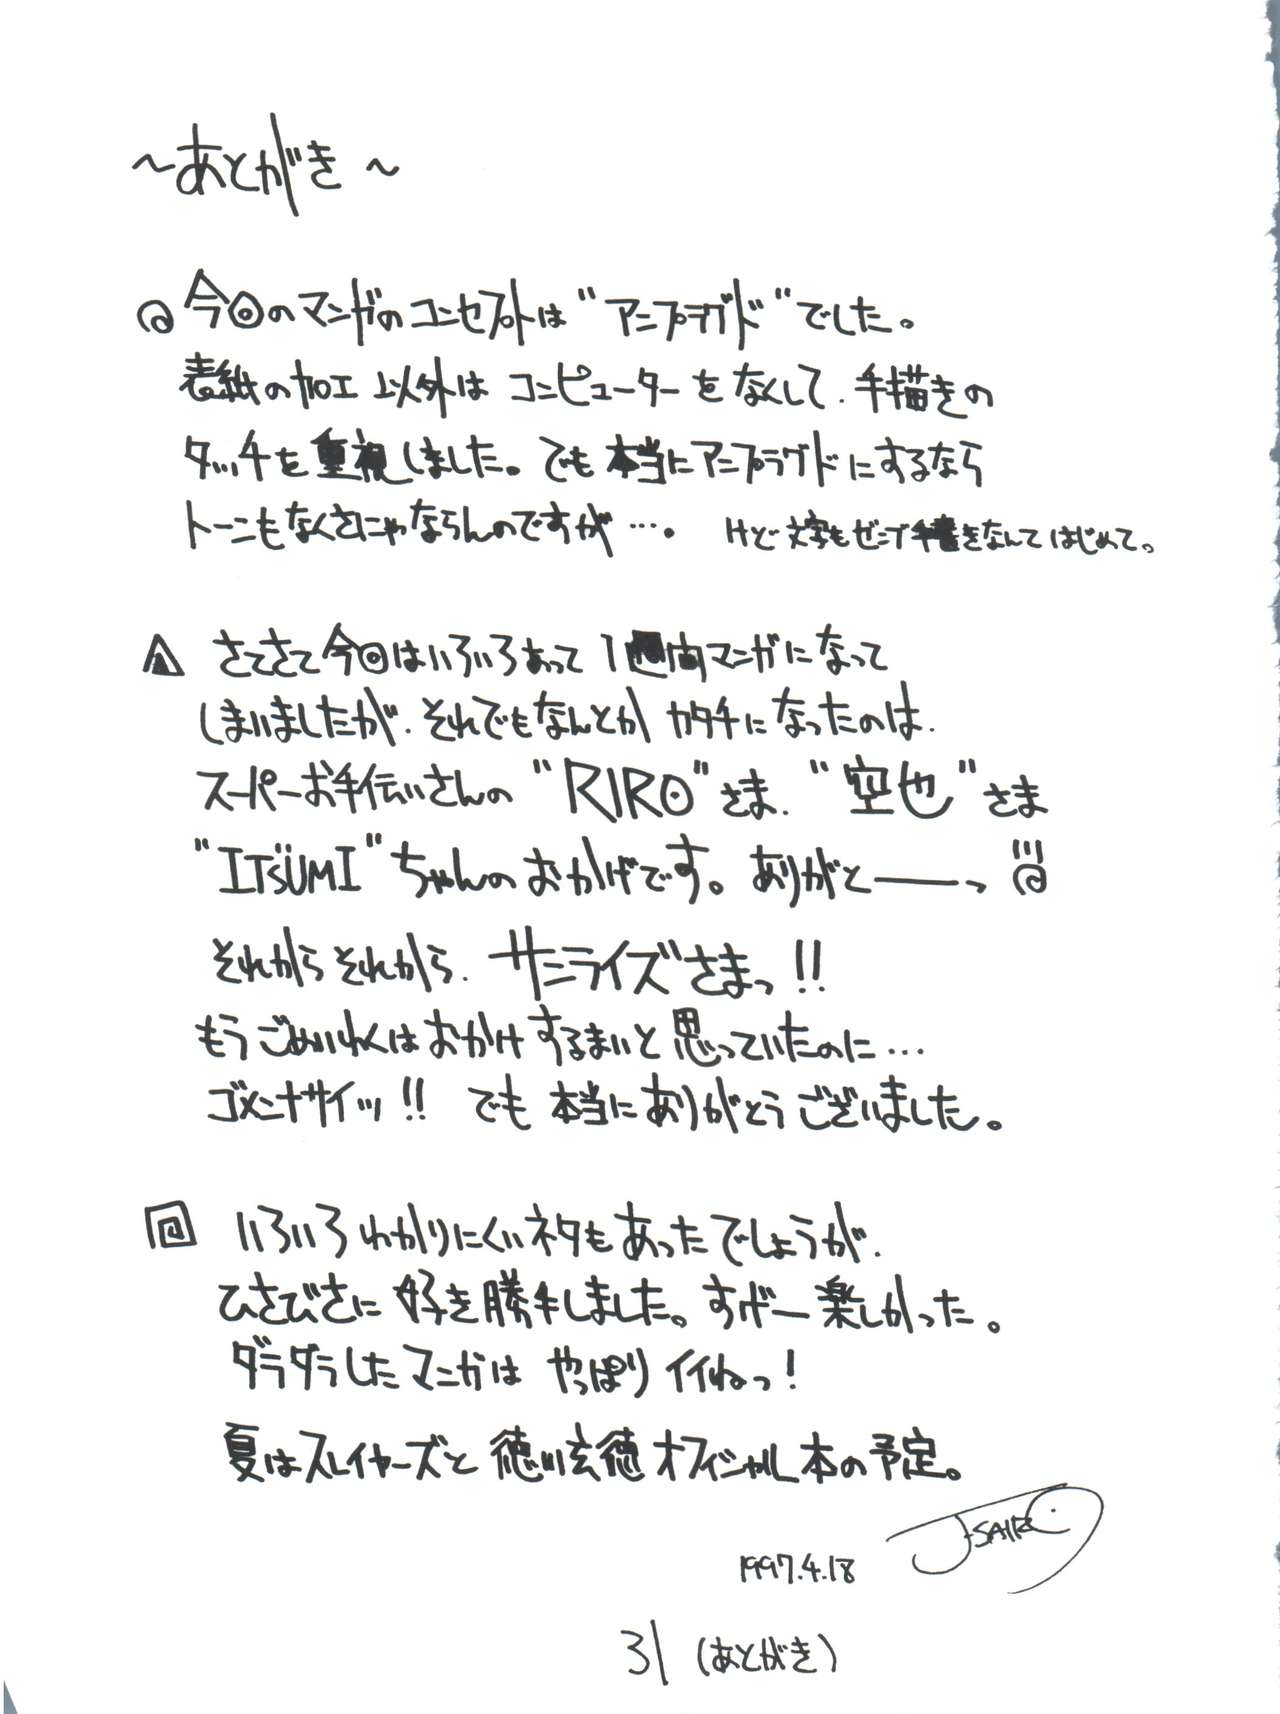 ～あとがき～
今回のマンガのコンセプトは"アンプラグド"でした。
表紙の加工以外はコンピューターをなくして、手描きの
タッチを重視しました。でも本当にアンプラグドにするなら
トーンもなくさにゃならんのですが…。 けど文字もゼンブ手書きなんてはじめて。
さてさて今回はいろいろあって1週間マンガになって
しまいましたが、それでもなんとかカタチになったのは、
スーパーお手伝いさんの"RIRO"さま、"空也"さま
"ITSUMI"ちゃんのおかげです。ありがと――っ!!!
それからそれから、サンライズさまっ!!
もうごめいわくはおかけするまいと思っていたのに…
ゴメンナサイッ!! でも本当にありがとうございました。
いろいろわかりにくいネタもあったでしょうが、
ひさびさに好き勝手しました。すげー楽しかった。
ダラダラしたマンガはやっぱりイイねっ!
夏はスレイヤーズと徳川玄徳オフィシャル本の予定。
1997.4.18
31 (あとがき)